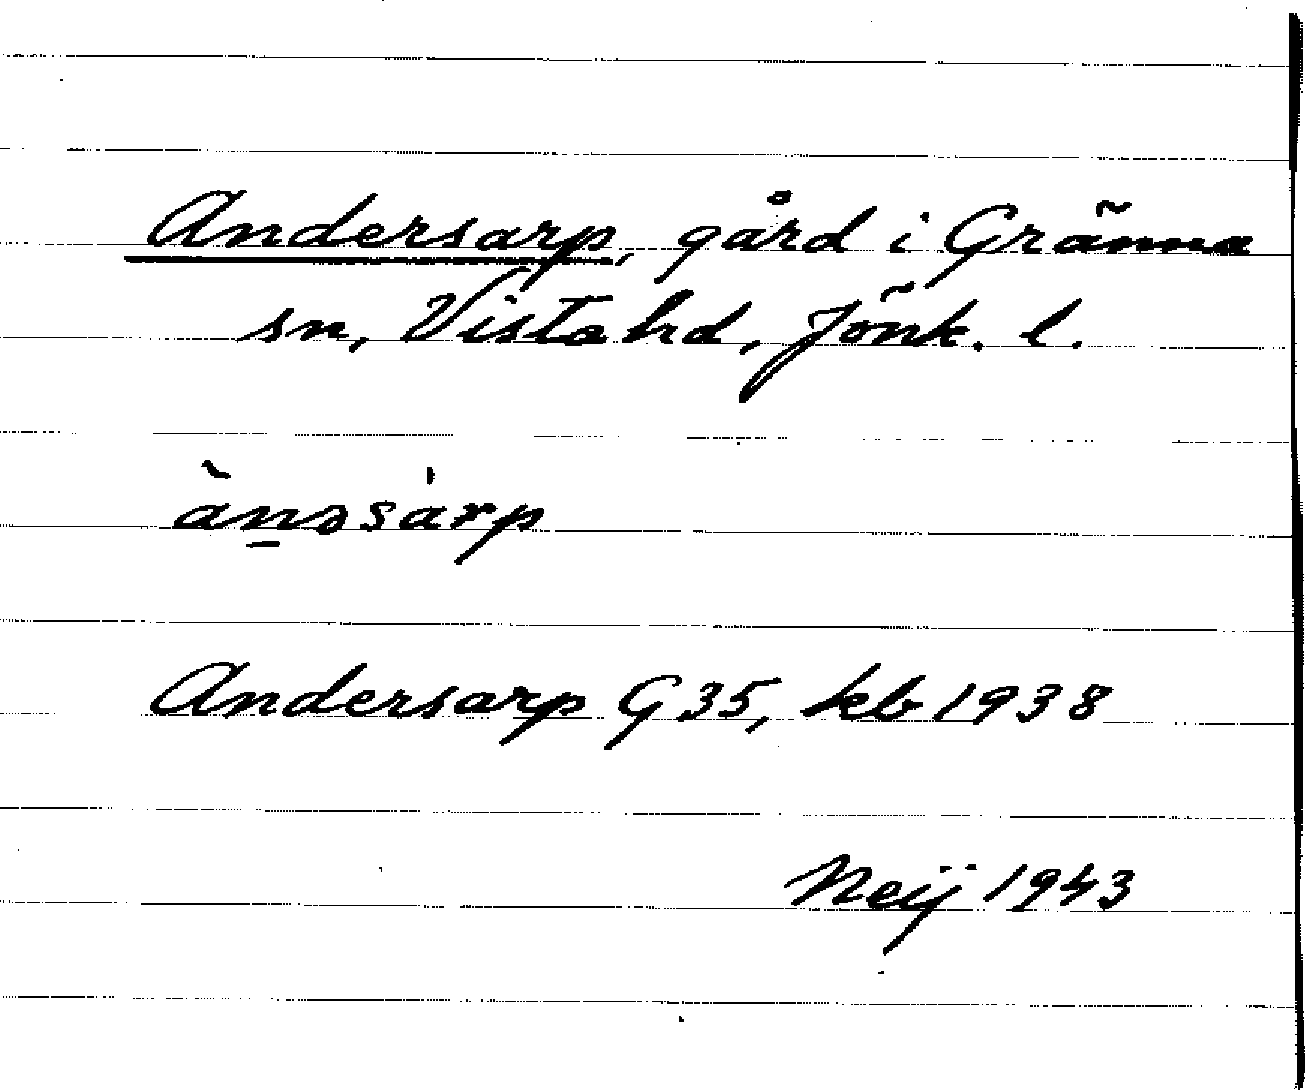 Andersarp, gård i Gränna
sn, Vista hd, Jönk. l.
àn̲əsárp
Andersarp G 35, kb 1938
Neij 1943